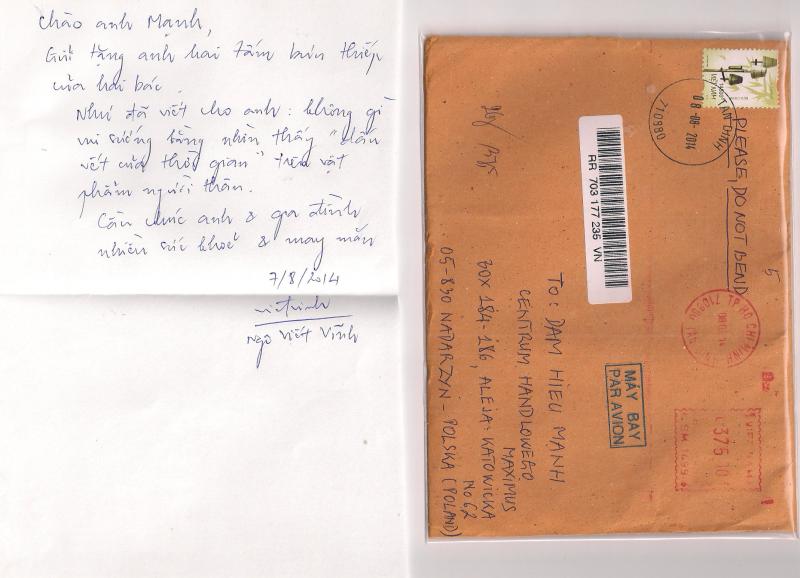 Chào anh Mạnh,
Gửi tặng anh hai tấm bưu thiếp
của hai bác.
Như đã viết cho anh: không gì
vui sướng bằng nhìn thấy "dấu
vết của thời gian" trên vật
phẩm người thân.
Cầu chúc anh & gia đình
nhiều sức khoẻ & may mắn
7/8/2014
Ngô Viết Vĩnh
VIETNAM
TAN DINH
08-08-2014
710980
PLEASE, DO NOT BEND
5
RR 703 177 235 VN
To: DAM HIEU MANH
CENTRUM HANDLOWEGO
MAXIMUS
BOX 184-186, ALEJA: KATOWICKA
No 62
05-830 NADARZYN - POLSKA (POLAND)
MÁY BAY
PAR AVION
TP HO CHI MINH